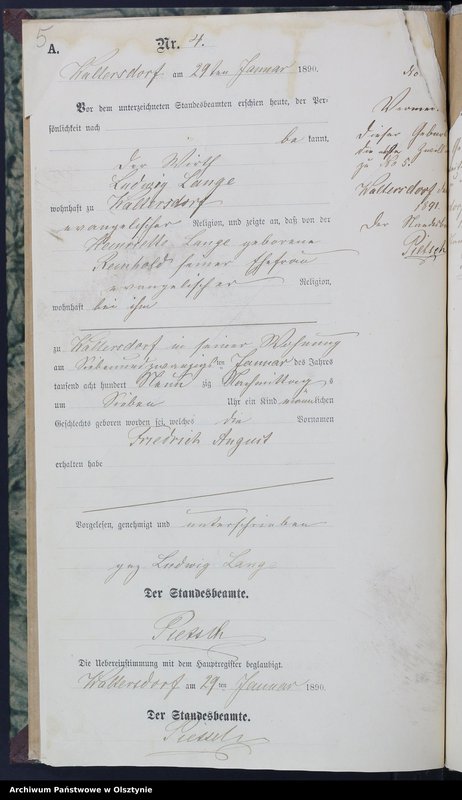 5
A.
Nr. 4.
Kaltersdorf am 29ten Januar 1890.
Vor dem unterzeichneten Standesbeamten erschien heute, der Per-
sönlichkeit nach
be kannt,
der Wirth
Ludwig Lange
wohnhaft zu Waltersdorf
evangelischer Religion, und zeigte an, daß von der
Henriette Lange geborene
Reinhold seiner Ehefrau
evangelischer Religion,
wohnhaft bei ihm
zu Waltersdorf in seiner Wohnung
am Siebenundzwanzigsten Januar des Jahres
tausend acht hundert Neun zig Nachmittag s
um Sieben Uhr ein Kind männlichen
Geschlechts geboren worden sei, welches die Vornamen
Friedrich August
erhalten habe
Vorgelesen, genehmigt und unterschrieben
gez Ludwig Lange
Der Standesbeamte.
Pietsch
Die Uebereinstimmung mit dem Hauptregister beglaubigt.
Waltersdorf am 29ten Januar 1890.
Der Standesbeamte.
Pietsch
No
dieser Geburt
zu No 5.
Waltersdorf
der Standesbe
Pietsch
Archiwum Państwowe w Olsztynie